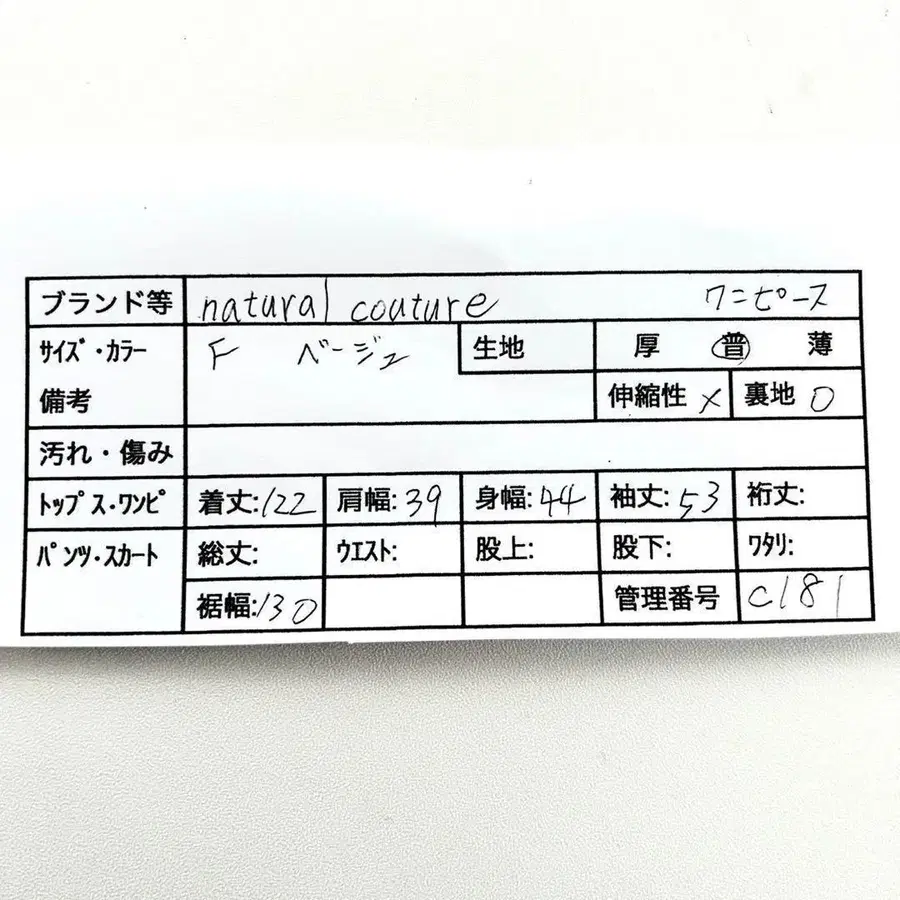 ブランド等 natural couture ワンピース
サイズ・カラー F ベージュ 生地 厚 普 薄
備考 伸縮性 × 裏地 ○
汚れ・傷み
トップス・ワンピ 着丈:122 肩幅:39 身幅:44 袖丈:53 裄丈:
パンツ・スカート 総丈: ウエスト: 股上: 股下: ワタリ:
裾幅:130 管理番号 C181